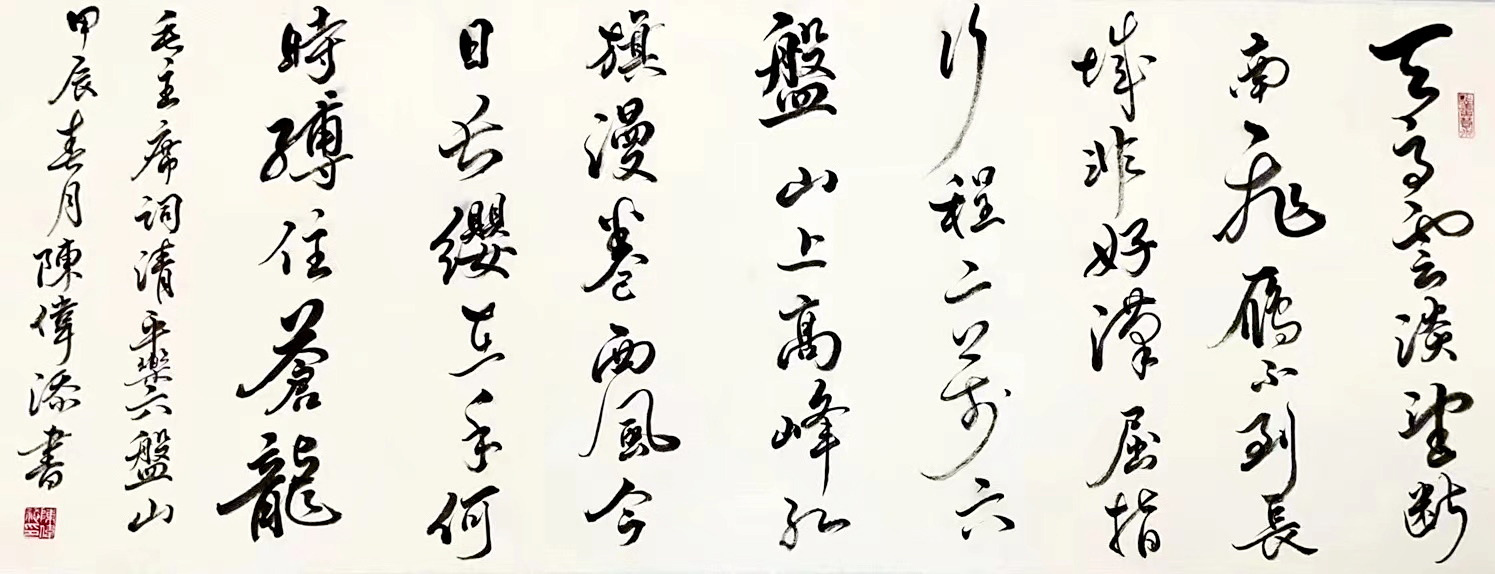 天高雲淡望斷
南飛雁不到長
城非好漢屈指
行程二萬六
盤山上高峰紅
旗漫卷西風今
日長纓在手何
時縛住蒼龍
毛主席詞清平樂六盤山
甲辰春月陳偉添書